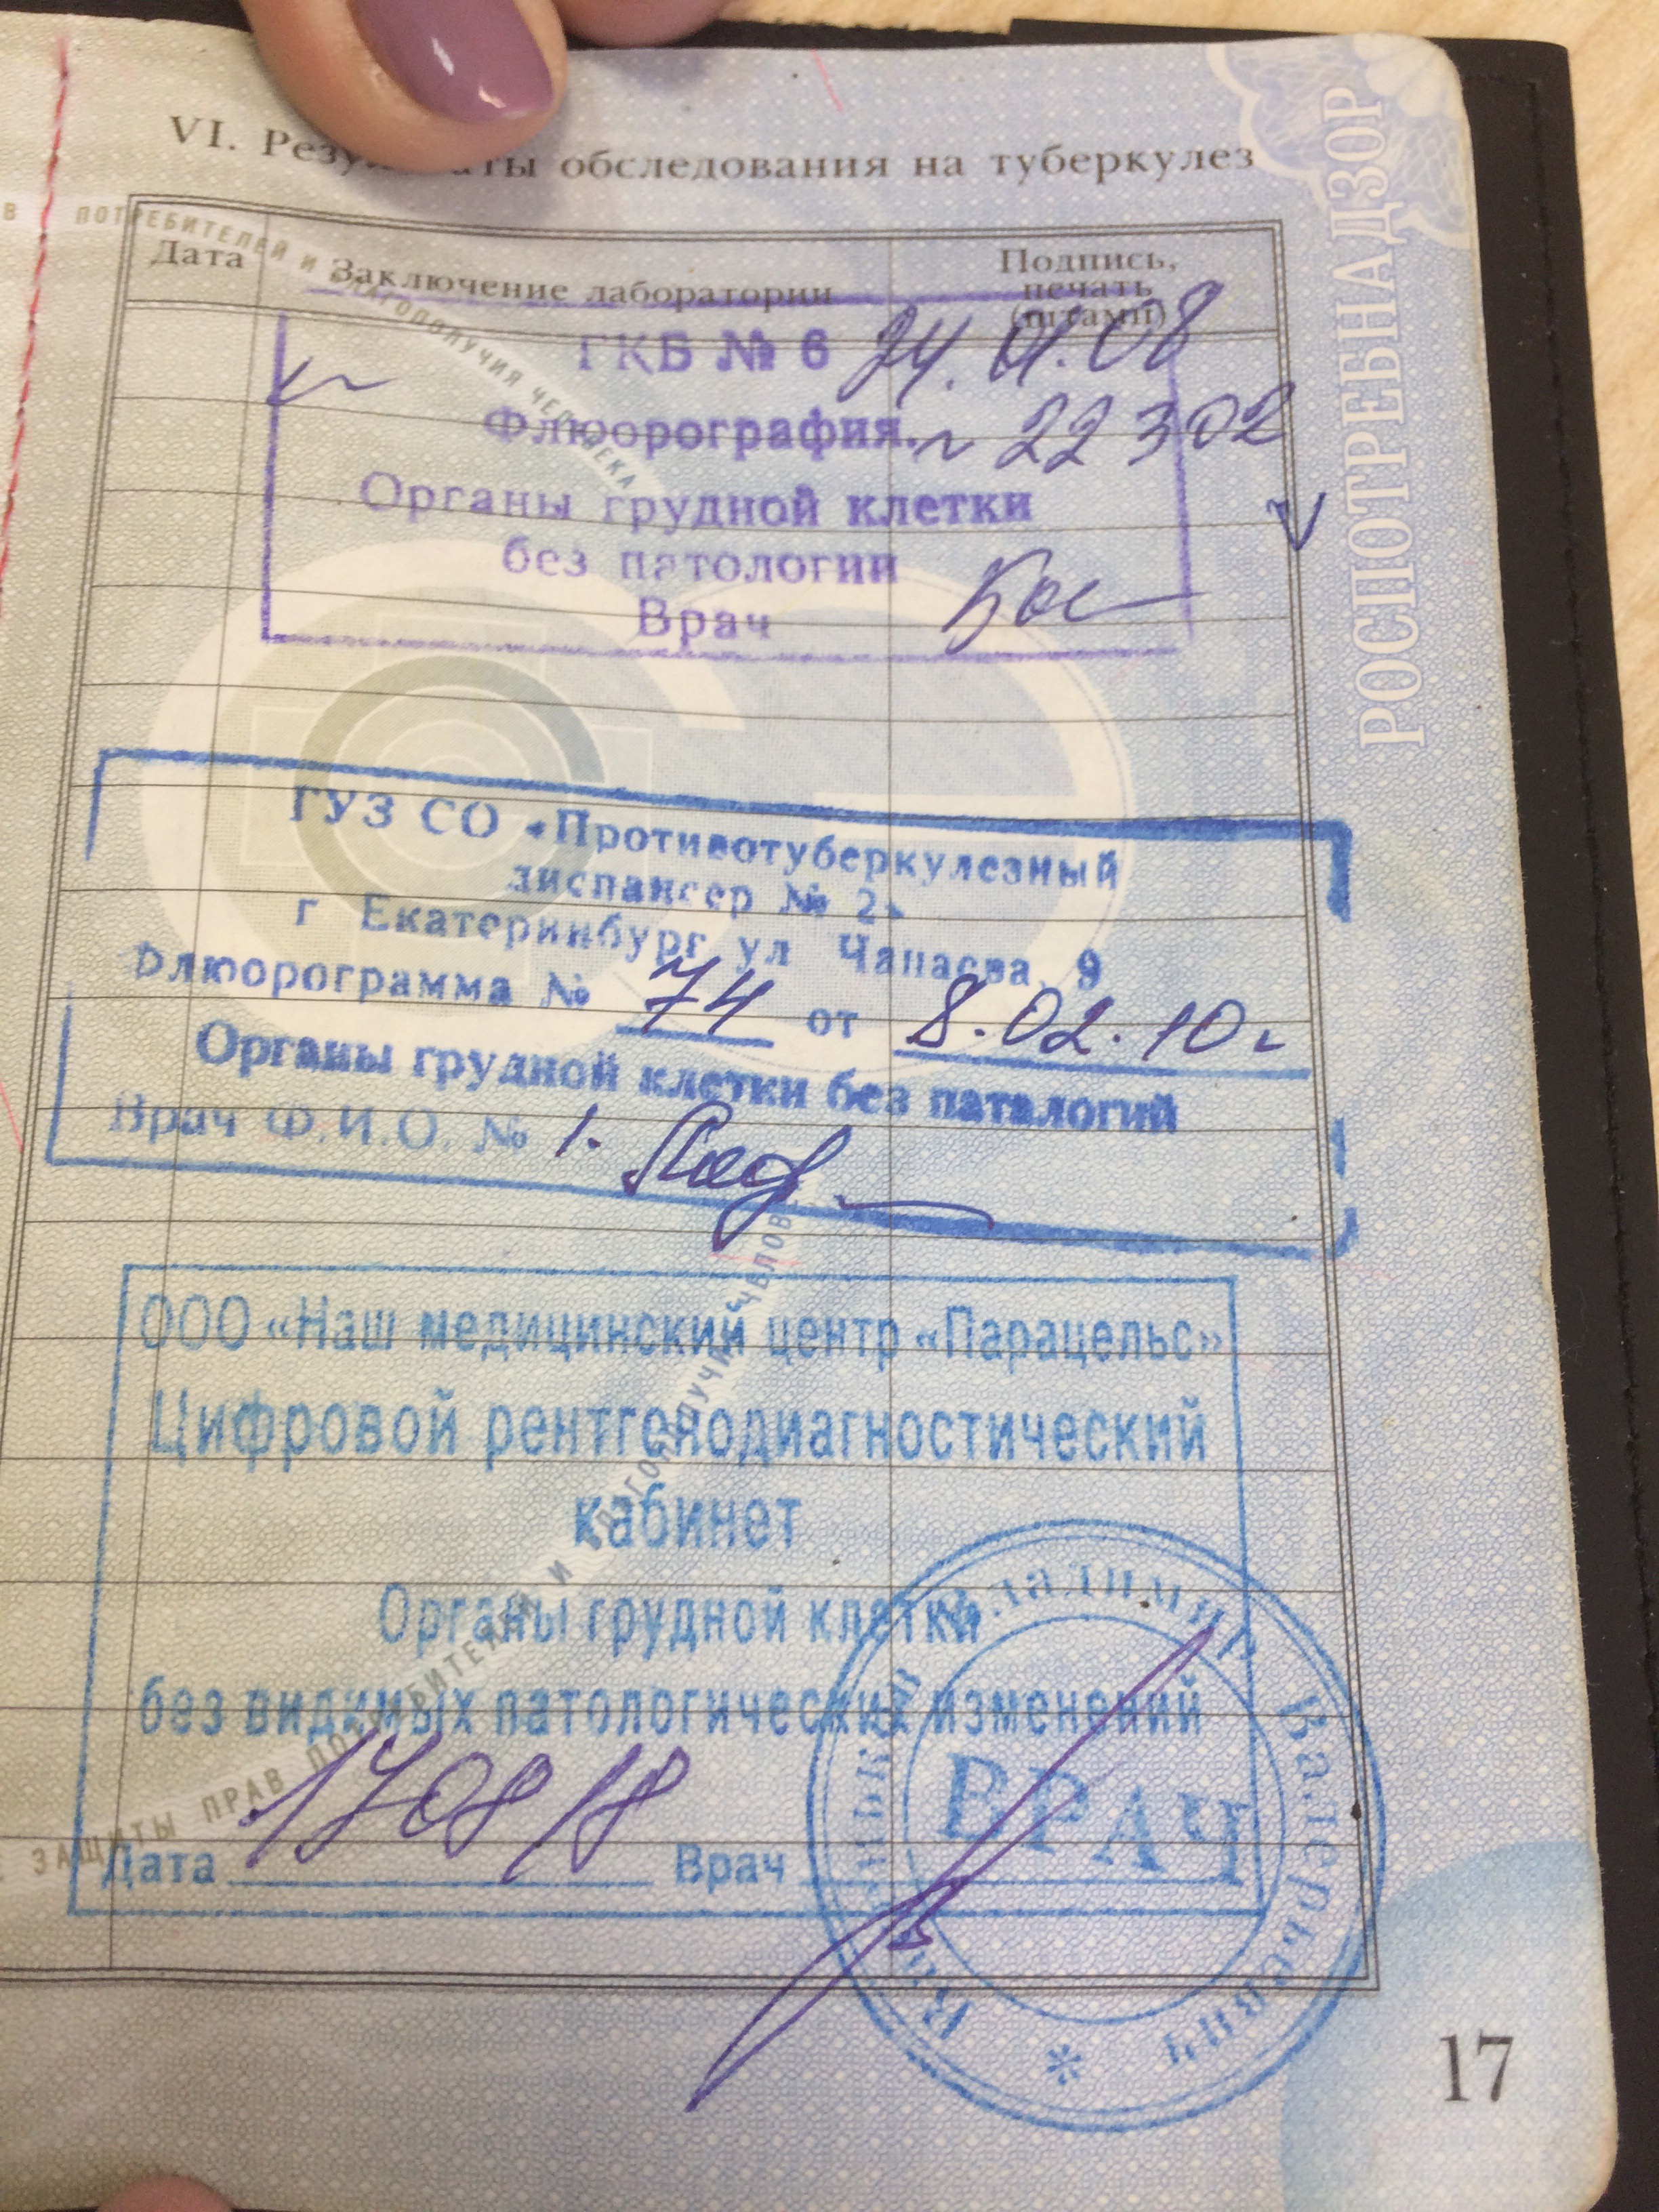 VI. Результаты обследования на туберкулез
РОСПОТРЕБНАДЗОР
Дата
Заключение лаборатории
Подпись,
печать
(штамп)
ГКБ № 6
Флюорография. № 22 302
Органы грудной клетки
без патологии
Врач
ГУЗ СО «Противотуберкулезный
диспансер № 2»
г Екатеринбург ул Чапаева, 9
Флюорограмма № 74 от 8.02.10 г
Органы грудной клетки без паталогий
Врач Ф.И.О. № 1.
ООО «Наш медицинский центр «Парацельс»
Цифровой рентгенодиагностический
кабинет
Органы грудной клетки
без видимых патологических изменений
Дата 170818 Врач
Владимир Валерьевич
ВРАЧ
ПОТРЕБИТЕЛЕЙ И БЛАГОПОЛУЧИЯ ЧЕЛОВЕКА
ЗАЩИТЫ ПРАВ ПОТРЕБИТЕЛЕЙ И БЛАГОПОЛУЧИЯ
17